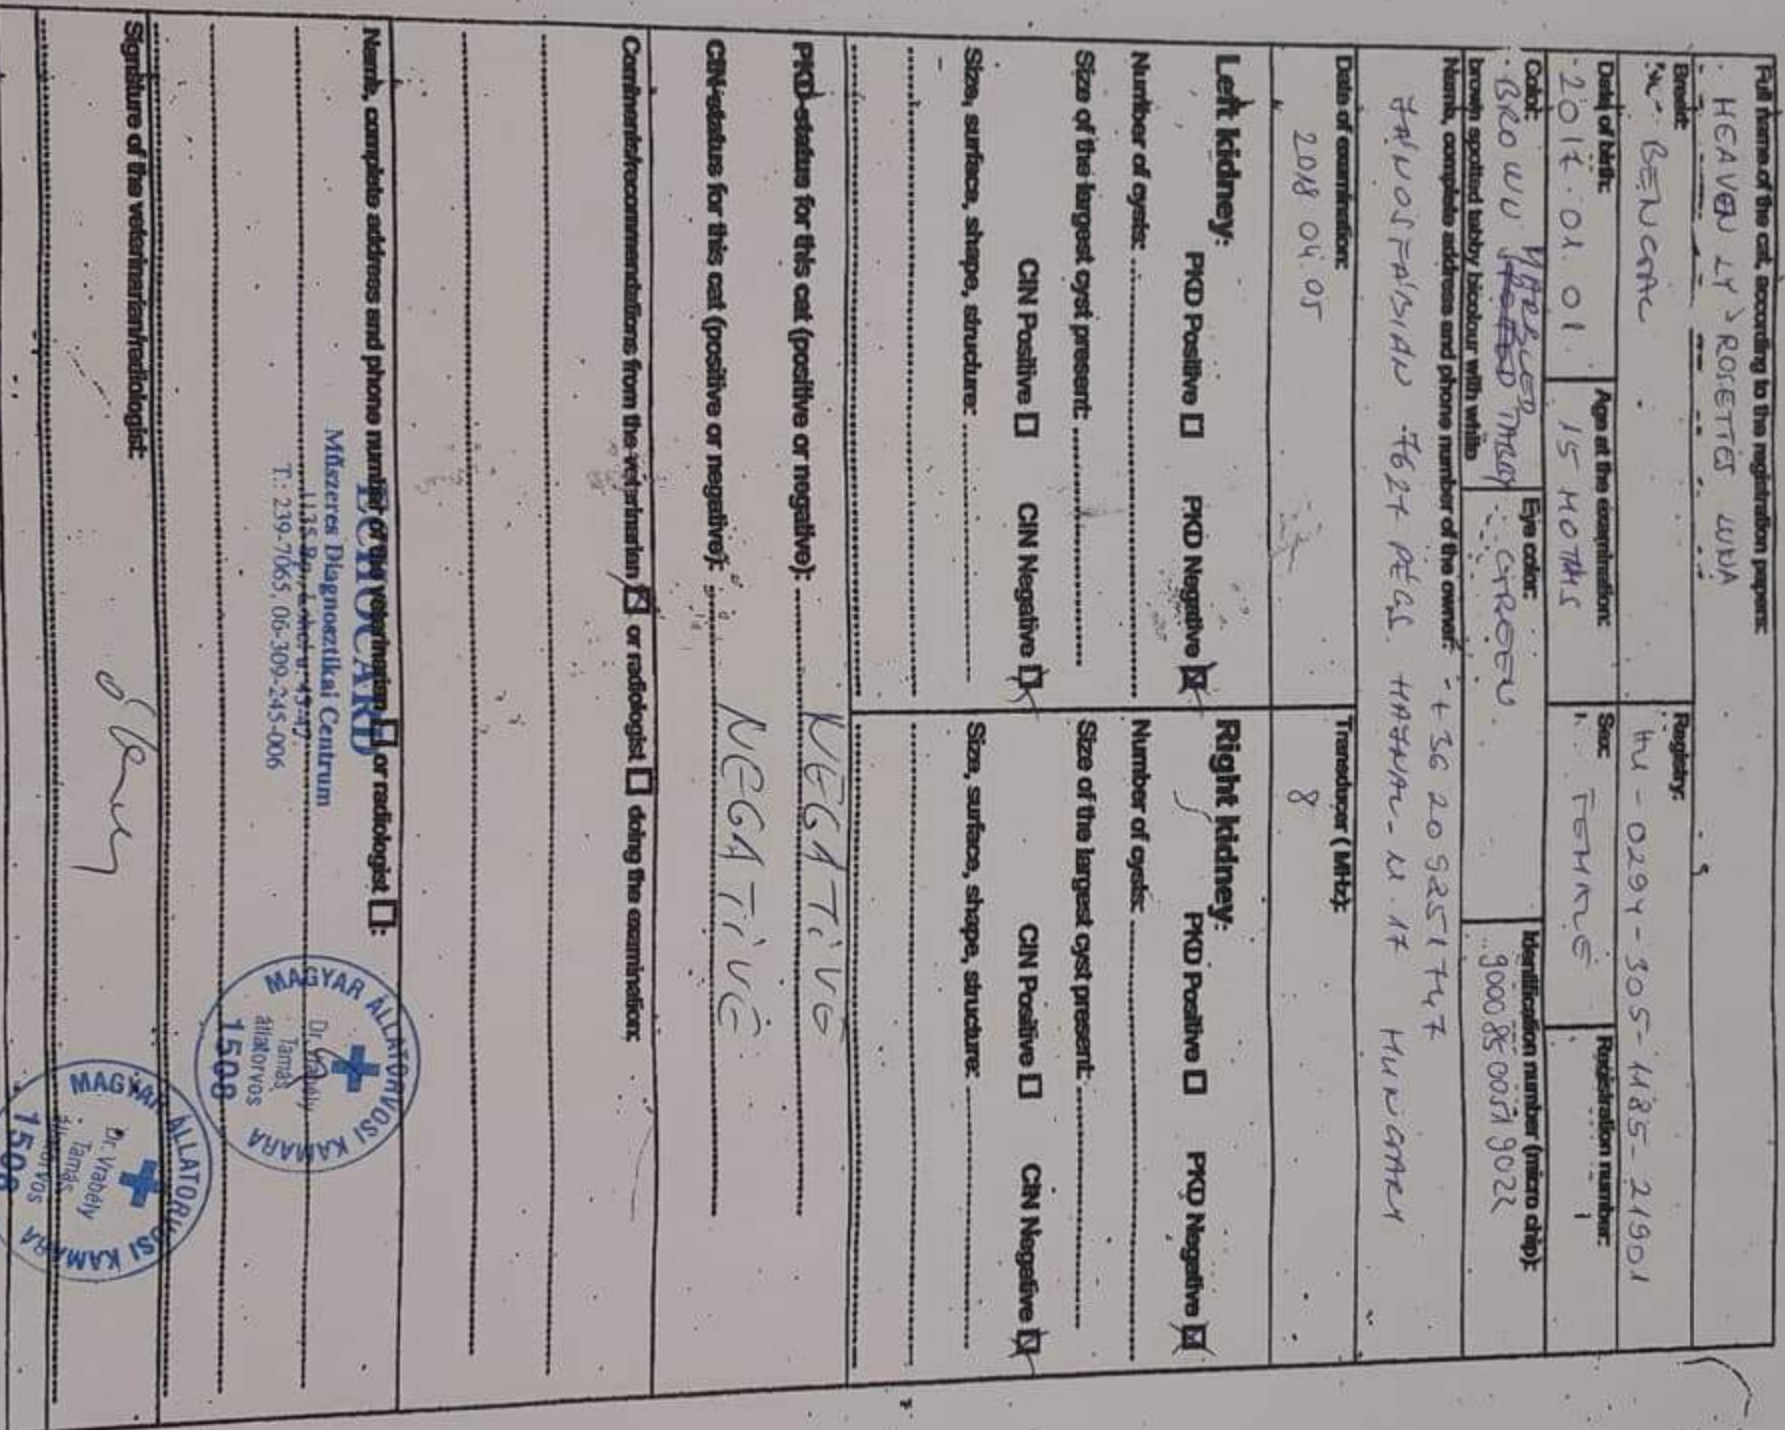 Full name of the cat, according to the registration papers:
HEAVENLY ROSETTES LUNA
Breed:
BENGAL
Registry:
HU-0294-305-1185-21901
Date of birth:
2017.01.01.
Age at the examination:
15 MOTHS
Sex:
FEMALE
Registration number:
Color:
BROWN MARBLED TABBY
brown spotted tabby bicolour with white
Eye color:
GREEN
Identification number (micro chip):
Name, complete address and phone number of the owner: +36 20 9251747
JÁNOS FÁBIÁN 7627 PÉCS HAJNAL U. 17 HUNGARY
Date of examination:
2018 04.05
Transducer (MHz):
8
Left kidney:
PKD Positive ☐ PKD Negative ☒
Number of cysts:
Size of the largest cyst present:
CIN Positive ☐ CIN Negative ☒
Size, surface, shape, structure:
Right kidney:
PKD Positive ☐ PKD Negative ☒
Number of cysts:
Size of the largest cyst present:
CIN Positive ☐ CIN Negative ☒
Size, surface, shape, structure:
PKD-status for this cat (positive or negative): NEGATIVE
CIN-status for this cat (positive or negative): NEGATIVE
Comments/recommendations from the veterinarian ☒ or radiologist ☐ doing the examination:
Name, complete address and phone number of the veterinarian ☐ or radiologist ☐:
ECHOCARD
Műszeres Diagnosztikai Centrum
1135 Bp., Lehel u. 43-47.
T.: 239-7065, 06-309-245-006
MAGYAR ÁLLATORVOSI KAMARA
Dr. Vrabély
Tamás
állatorvos
1508
Signature of the veterinarian/radiologist:
MAGYAR ÁLLATORVOSI KAMARA
Dr. Vrabély
Tamás
állatorvos
1508